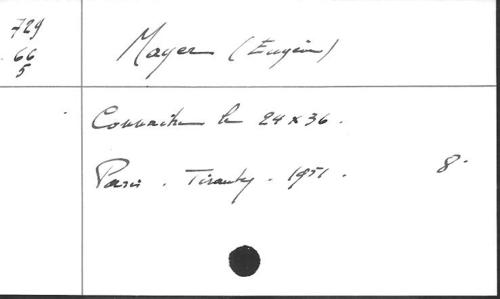 729
66
5
Mayer (Eugène)
Connaître le 24 x 36.
Paris. Tiranty. 1951. 8°